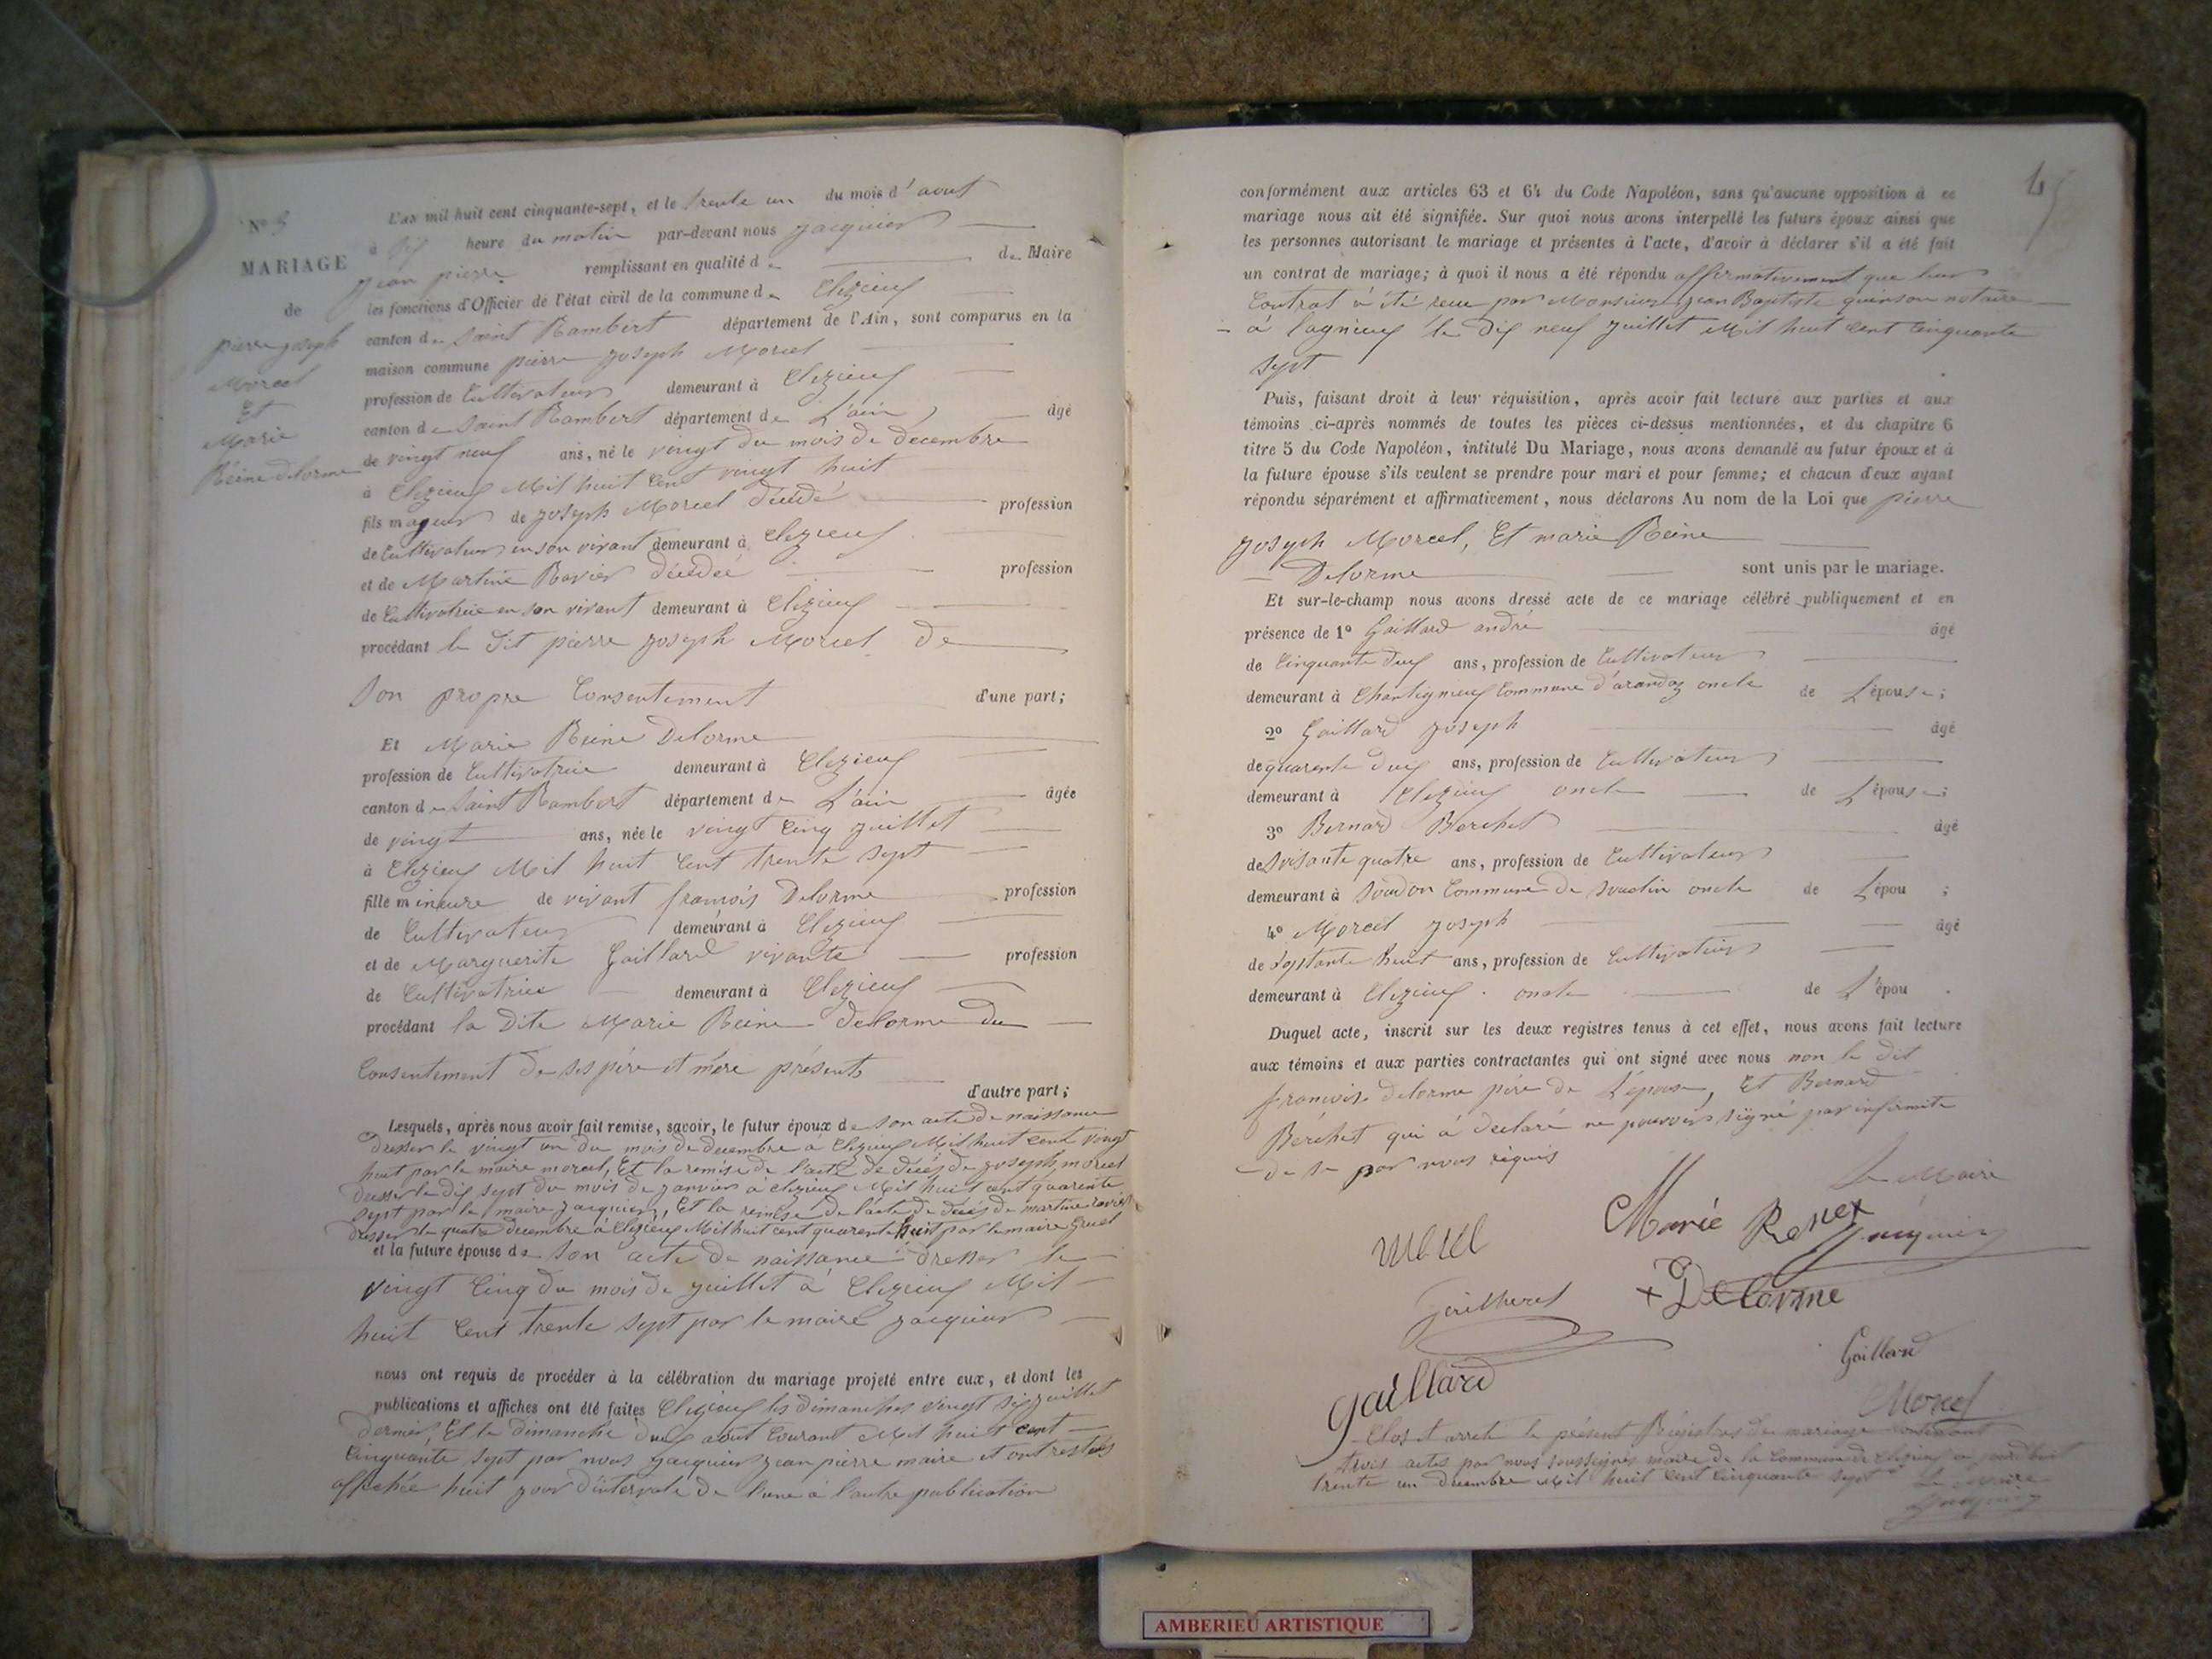 N° 3
MARIAGE
de
pierre joseph
Morcel
Et
Marie
Reine delorme
L'an mil huit cent cinquante-sept, et le trente un du mois d'aout
à dix heure du matin par-devant nous jacquier
jean pierre remplissant en qualité de de Maire
les fonctions d'Officier de l'état civil de la commune de Clezieux
canton de Saint Rambert département de l'Ain, sont comparus en la
maison commune pierre joseph Morcel
profession de Cultivateur demeurant à Clezieux
canton de Saint Rambert département de L'ain âgé
de vingt neuf ans, né le vingt du mois de decembre
à Clezieux Mil huit Cent vingt huit
fils majeur de joseph Morcel décédé profession
de Cultivateur en son vivant demeurant à Clezieux
et de Martine Ravier décédée profession
de Cultivatrice en son vivant demeurant à Clezieux
procédant le dit pierre joseph Morcel de
Son propre Consentement d'une part;
Et Marie Reine Delorme
profession de Cultivatrice demeurant à Clezieux
canton de Saint Rambert département de L'ain âgée
de vingt ans, née le vingt Cinq juillet
à Clezieux Mil huit Cent trente sept
fille mineure de vivant francois Delorme profession
de Cultivateur demeurant à Clezieux
et de Marguerite Gaillard vivante profession
de Cultivatrice demeurant à Clezieux
procédant la Dite Marie Reine delorme du
Consentement de ses père et mère présents
d'autre part;
Lesquels, après nous avoir fait remise, savoir, le futur époux de son acte de naissance
dresser le vingt un du mois de decembre à Clezieux Mil huit cent vingt
huit par le maire morcel, Et la remise de l'acte de décés de joseph morcel
dresser le dix sept du mois de janvier à clezieux Mil huit cent quarente
sept par le maire jacquier, Et la remise de l'acte de décés de martine ravier
dresser le quatre decembre à Clezieux Mil huit cent quarente huit par le maire Gruel
et la future épouse de Son acte de naissance dresser le
vingt Cinq du mois de juillet à Clezieux Mil
huit Cent trente sept par le maire jacquier
nous ont requis de procéder à la célébration du mariage projeté entre eux, et dont les
publications et affiches ont été faites Clezieux les dimanches vingt six juillet
dernier, Et le dimanche deux aout Courant Mil huit cent
Cinquante sept par nous jacquier jean pierre maire et ont restées
affichée huit jour d'intervale de l'une à l'autre publication
conformément aux articles 63 et 64 du Code Napoléon, sans qu'aucune opposition à ce
mariage nous ait été signifiée. Sur quoi nous avons interpellé les futurs époux ainsi que
les personnes autorisant le mariage et présentes à l'acte, d'avoir à déclarer s'il a été fait
un contrat de mariage; à quoi il nous a été répondu affirmativement que leur
Contrat à été recu par Monsieur jean Baptiste quinson notaire
à lagnieux le dix neuf juillet Mil huit cent Cinquante
sept
Puis, faisant droit à leur réquisition, après avoir fait lecture aux parties et aux
témoins ci-après nommés de toutes les pièces ci-dessus mentionnées, et du chapitre 6
titre 5 du Code Napoléon, intitulé Du Mariage, nous avons demandé au futur époux et à
la future épouse s'ils veulent se prendre pour mari et pour femme; et chacun d'eux ayant
répondu séparément et affirmativement, nous déclarons Au nom de la Loi que pierre
joseph Morcel, Et marie Reine
Delorme sont unis par le mariage.
Et sur-le-champ nous avons dressé acte de ce mariage célébré publiquement et en
présence de 1° Gaillard andré âgé
de Cinquante deux ans, profession de Cultivateur
demeurant à Chantignieux Commune d'arandas oncle de L'épouse;
2° Gaillard joseph âgé
de quarente deux ans, profession de Cultivateur
demeurant à Clezieux oncle de L'épouse;
3° Bernard Berchet âgé
de soisante quatre ans, profession de Cultivateur
demeurant à soudon Commune de souclin oncle de L'épou ;
4° Morcel joseph âgé
de soptante huit ans, profession de Cultivateur
demeurant à Clezieux oncle de L'épou .
Duquel acte, inscrit sur les deux registres tenus à cet effet, nous avons fait lecture
aux témoins et aux parties contractantes qui ont signé avec nous non le dit
francois delorme père de L'épouse, Et Bernard
Berchet qui à declaré ne pouvoir signé par infirmite
de se par nous requis
Le Maire
Jacquier
Morcel
Marie Renex
+ Delorme
Gaillard
Gaillard
Morcel
Clos et arreté le présent Régistres de mariage contenant
trois actes par nous soussignés maire de la Commune de Clezieux au jourdhui
trente un decembre Mil huit Cent Cinquante sept Le Maire
Jacquier
AMBERIEU ARTISTIQUE